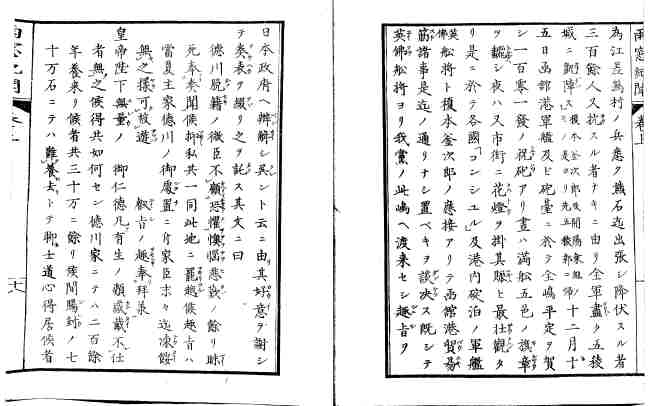 雨窓紀聞 巻上
為江差鳥村ノ兵悉ク熊石迄出張シ降伏スル者
三百餘人又抗スル者ナキニ由リ全軍盡ク五稜
城ニ凱陣ス 十二月十
五日函館港軍艦及ヒ砲臺ニ於テ全嶋平定ヲ賀
シ一百零一發ノ祝砲アリ晝ハ満舩五色ノ旗章
ヲ飜シ夜ハ又市街ニ花燈ヲ掛其賑ヒ最壮觀タ
リ是ニ於テ各國「コンシュル」及港内碇泊ノ軍艦
英佛舩将ト榎本釜次郎ノ應接アリテ函館港貿易
筋諸事是迄ノ通リナシ置ベキヲ談决ス既シテ
英佛舩将ヨリ我黨ノ此嶋ヘ渡来セシ趣旨ヲ
日本政府ヘ辨解シ具ント云ニ由其好意ヲ謝シ
テ奏表ヲ綴リ之ヲ託ス其文ニ曰
徳川脱籍ノ微臣不顧恐懼懊惱悲歎ノ餘リ昧
死奉奏聞候抑私共一同此地ニ罷越候趣旨ハ
當夏主家徳川ノ御處置ニ付家臣末々迄凍餒
無之様可致遊 叡旨ノ趣奉拜承
皇帝陛下無量ノ 御仁徳凡有生ノ類感戴不仕
者無之候得共如何セン徳川家ニテハ二百餘
年養来リ候者共三十万ニ餘リ候間賜封ノ七
十万石ニテハ難養去トテ御士道心得居候者